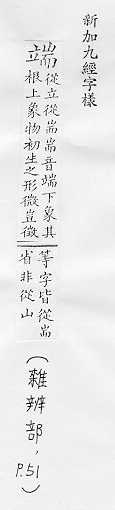 新加九經字樣
端從立從耑耑音端下象其
根上象物初生之形微豈徵
等字皆從耑
省非從山
(雜辨部, P.51)